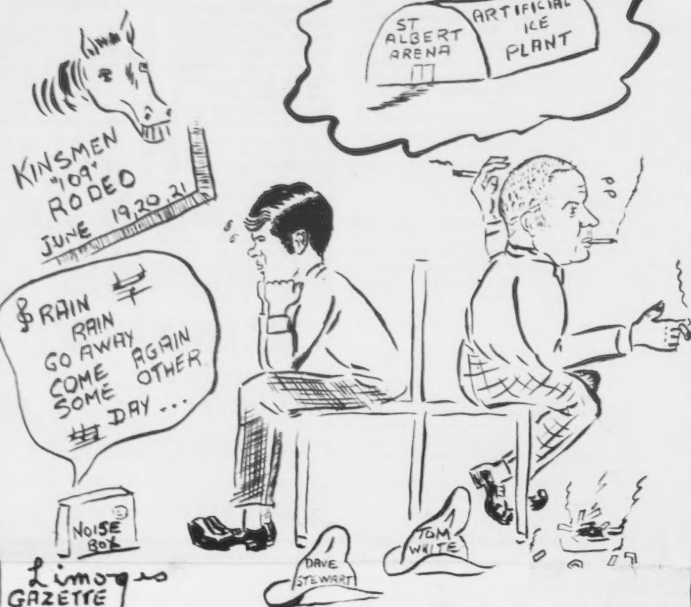 ST
ALBERT
ARENA
ARTIFICIAL
ICE
PLANT
KINSMEN
"109"
RODEO
JUNE 19,20,21
RAIN
RAIN
GO AWAY
COME AGAIN
SOME OTHER
DAY...
NOISE
BOX
DAVE
STEWART
TOM
WHITE
Limoges
GAZETTE